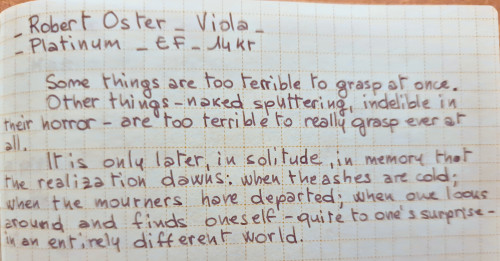 - Robert Oster - Viola -
- Platinum - EF - 14 kt
Some things are too terrible to grasp at once.
Other things - naked sputtering, indelible in
their horror - are too terrible to really grasp ever at
all.
It is only later, in solitude, in memory that
the realization dawns: when the ashes are cold;
when the mourners have departed; when one looks
around and finds oneself - quite to one's surprise -
in an entirely different world.